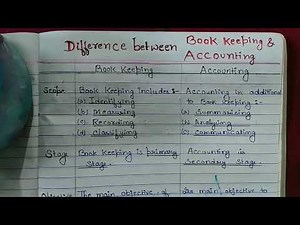 Difference between Book Keeping &
Accounting
Book Keeping Accounting
Scope Book Keeping Includes:- Accounting in additional
(a) Identifying to Book Keeping :-
(b) Measuring (a) Summarising
(c) Recording (b) Analysing
(d) Classifying (c) Communicating
Stage Book Keeping is primary Accounting is
Stage. Secondary Stage.
The main objective of Its main objective to